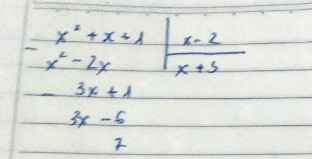 x² + x + 1 | x - 2
- x² - 2x | x + 3
- 3x + 1
3x - 6
7